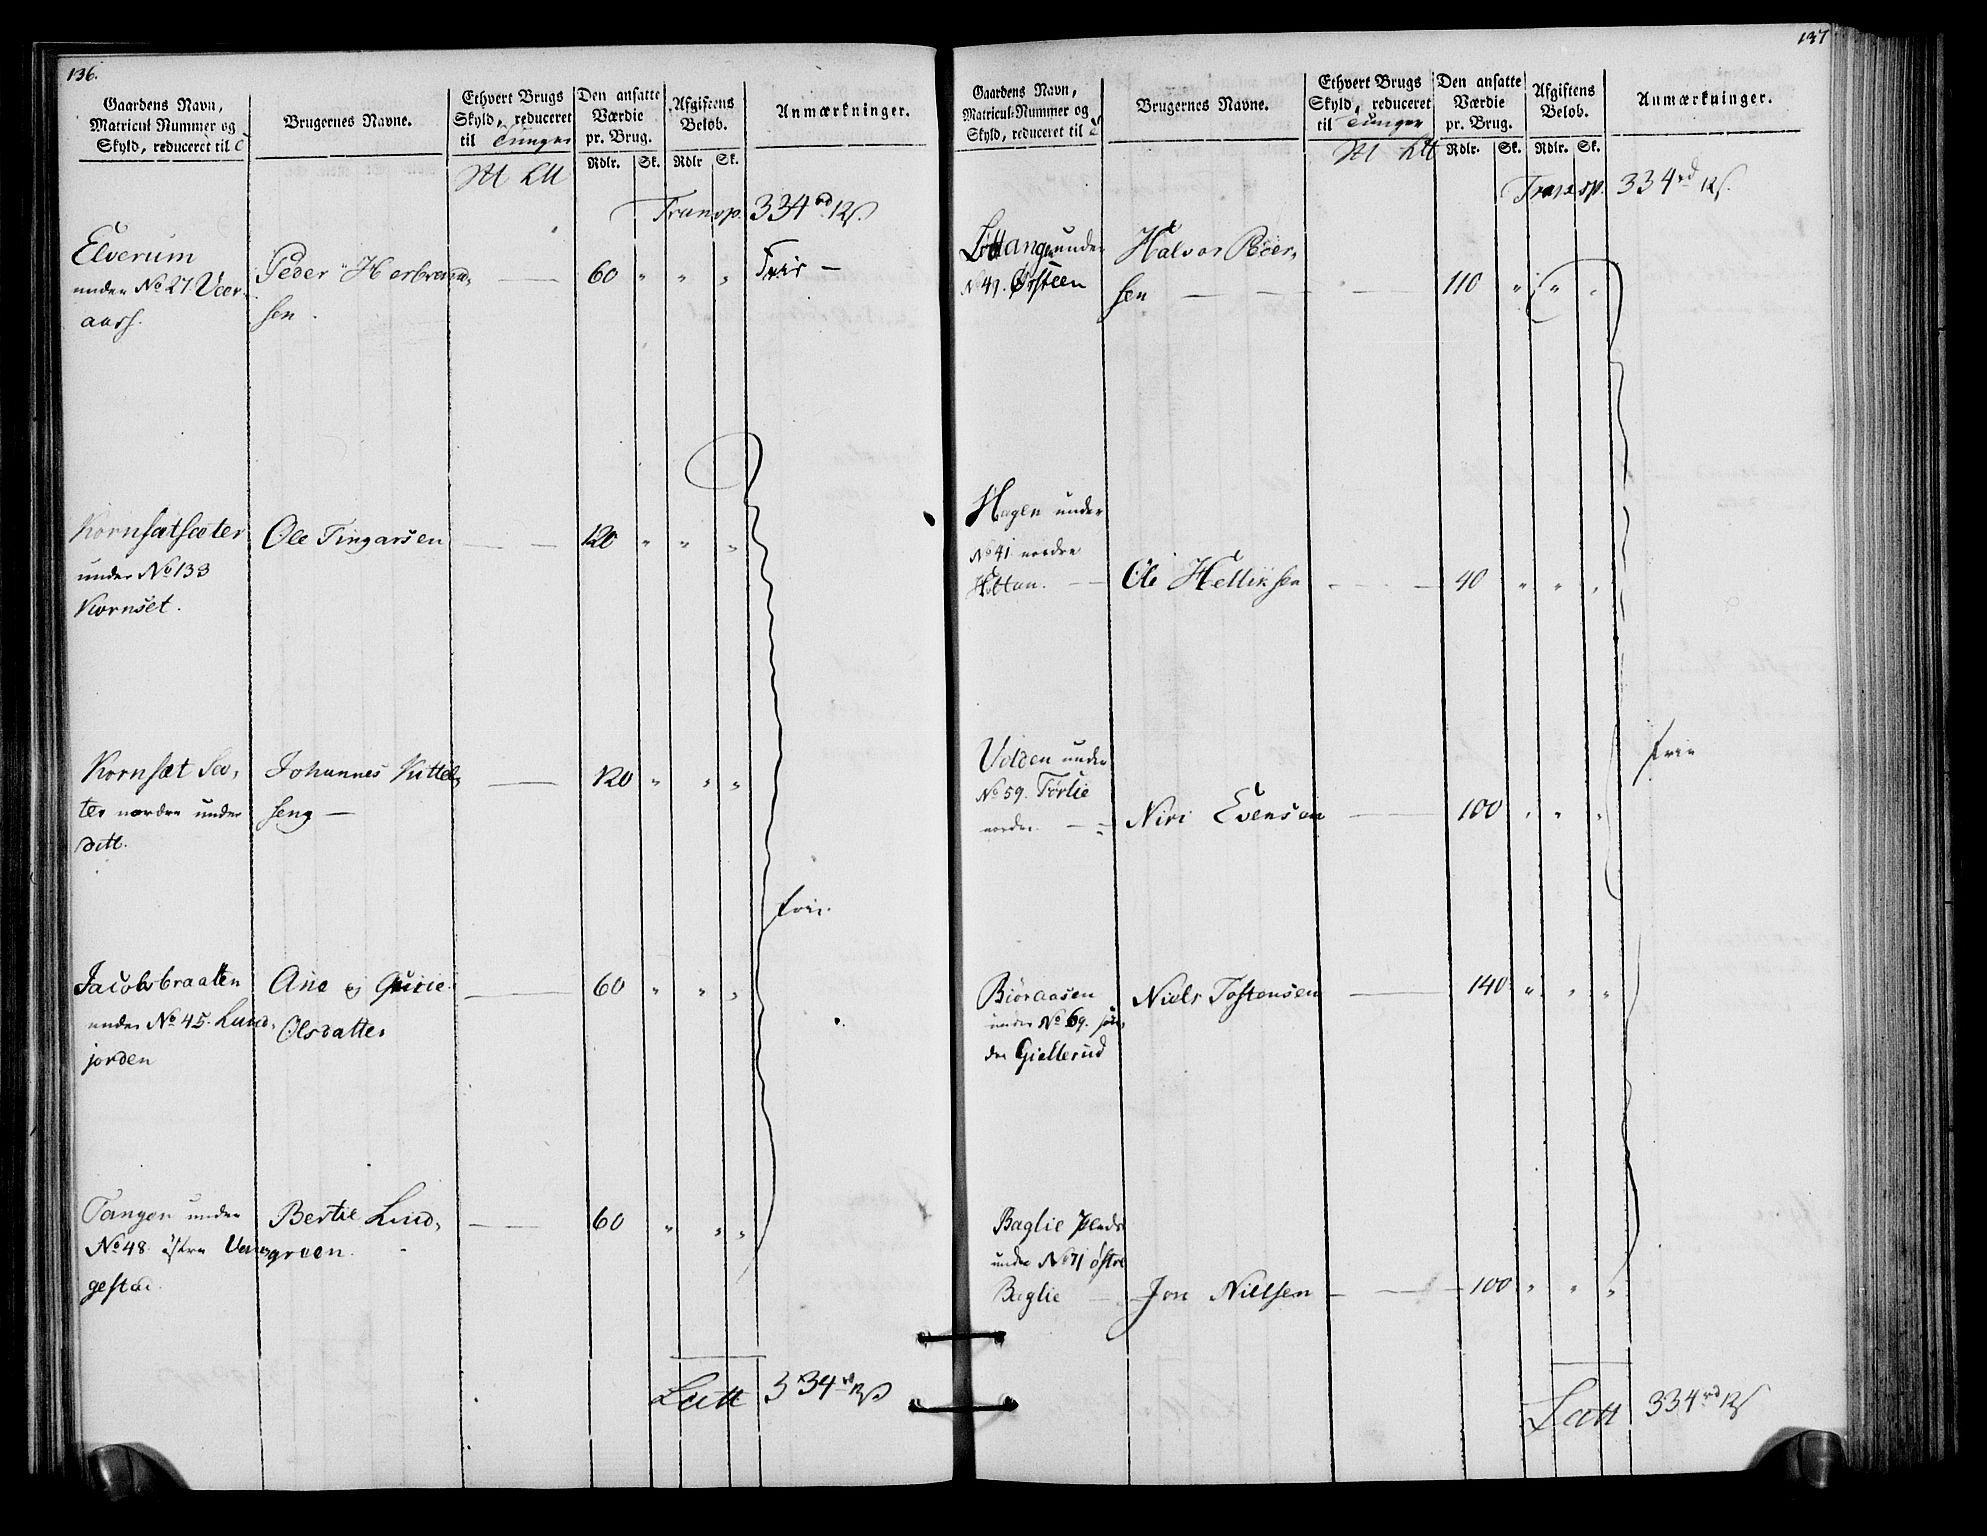 136.
Gaardens Navn,
Matricul Nummer og
Skyld, reduceret til T
Brugernes Navne.
Ethvert Brugs
Skyld, reduceret
til Tunger
Den ansatte
Værdie
pr. Brug.
Afgiftens
Beløb.
Anmærkninger.
Rdlr. Sk. Rdlr Sk.
Transp. 334 rd 12 s.
Elverum
under No 27. Veer-
aasf.
Peder Herbrand-
sen.
60 " " "
Frie —
Kornsætsæter
under No 133
Kornset.
Ole Tingarsen
120 " " "
Kornsæt Sæ-
ter nordre under
ditt.
Johannes Kittel-
seng —
120 " " "
frie.
Jacobsbraatten
under No 45. Lund-
jorden
Ane og Guirie
Olsdatter
60 " " "
Tangen under
No 48. østre Ven-
gestad.
Bertil Lind-
green.
60 " " "
Latt 334 rd 12 s
137
Gaardens Navn,
Matricul-Nummer og
Skyld, reduceret til T
Brugernes Navne.
Ethvert Brugs
Skyld, reduceret
til Tunger
Den ansatte
Værdie
pr. Brug.
Afgiftens
Beløb.
Anmærkninger.
Rdlr. Sk. Rdlr. Sk.
Transp. 334 rd 12 s.
under
No 41. Østeen
Halvor Peer-
sen
110 " " "
Hagen under
No 41 nordre
Hottan.
Ole Helliksen
40 " " "
Volden under
No 59. Tørlie
nordre
Niri Evensen
100 " " "
frie
Biøraasen
under No 69. søn-
dre Giellerud
Niels Tostensen
140 " " "
Baglie Plads
under No 71 østre
Baglie
Jon Nielsen
100 " " "
Latt 334 rd 12 s